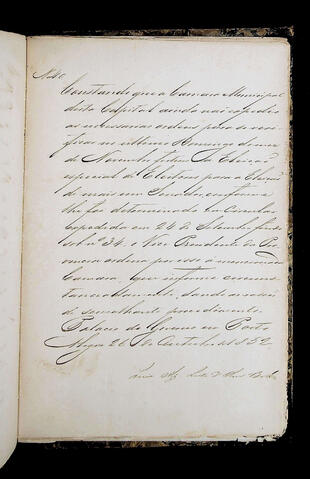 N. 40
Constando que a Camara Municipal
desta Capital ainda não expedio
as necessarias ordens para se veri
ficar no ultimo Domingo do mez
de Novembro futuro a Eleição
especial de Eleitores para a Eleição
de mais um Senador, conforme
lhe foi determinado em Circular
expedida em 24 de Setembro findo
sob nº 34, o Vice Presidente da Pro
vincia ordena por isso á mencionada
Camara, que informe circuns
tanciadamente, dando as razões
de semelhante procedimento.
Palacio do Governo em Porto
Alegre 26 de Outubro de 1852.
Luis